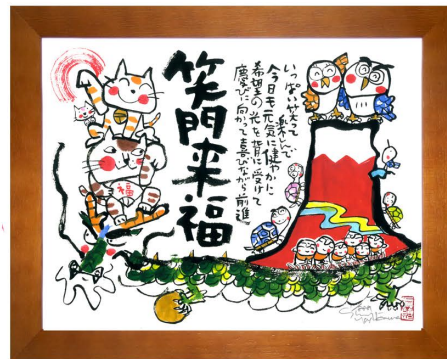 笑門来福
いっぱい笑って楽しんで
今日も元気に健やかに
希望の光を背に受けて
慶びに向かって喜びながら前進
福